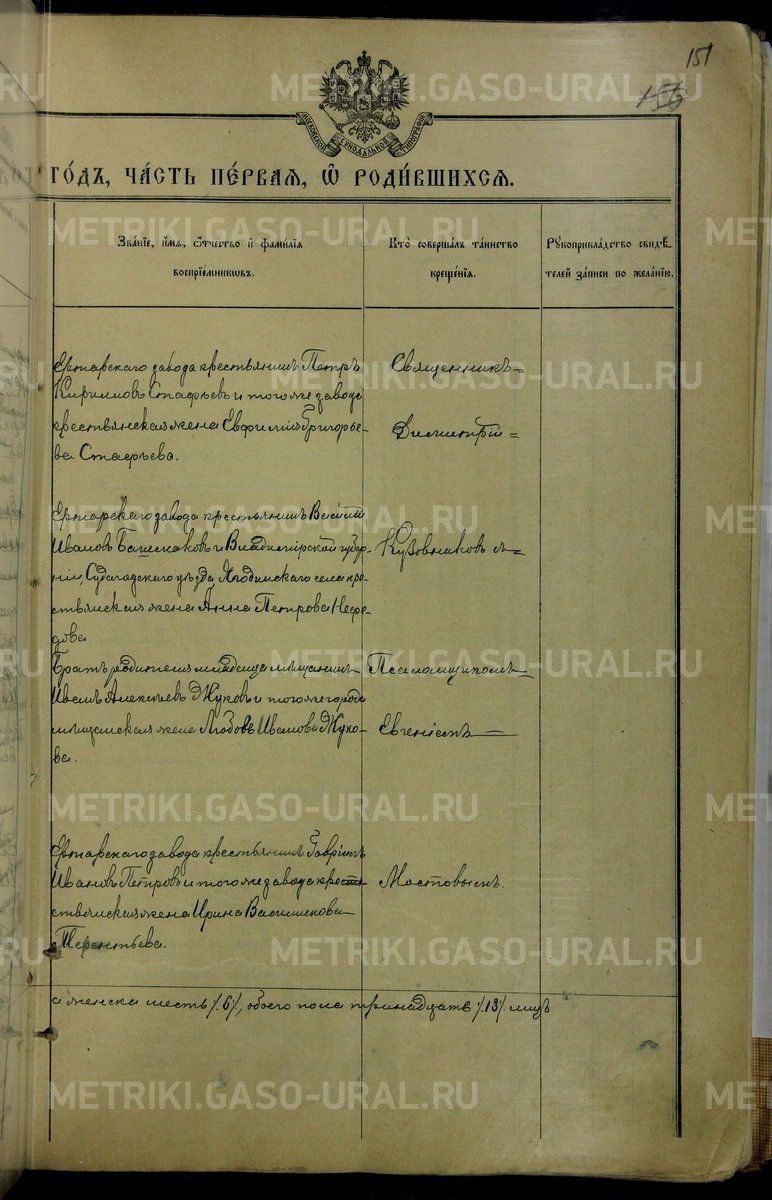 151
156
МОСКОВСКОЙ СѴНОДАЛЬНОЙ ТИПОГРАФІИ
го́дъ, ча́сть пе́рваѧ, ѡ҆ роди́вшихсѧ.
Зва́нїе, и҆́мѧ, ѻ҆́тчество и҆ фами́лїѧ
воспрїе́мникѡвъ.
Кто̀ соверша́лъ та́инство
креще́нїѧ.
Рꙋкоприкла́дство свидѣ́-
телей за́писи по жела́нїю.
Ертарскаго завода крестьянинъ Петръ
Кирилловъ Стафѣевъ и того же завода
крестьянская жена Евфимія Григорье-
ва Стафѣева.
Священникъ =
Димитрій =
Ертарскаго завода крестьянинъ Василій
Ивановъ Башмаковъ и Владимірской губер-
ніи, Судогодскаго уѣзда, Ягодинскаго села кре-
стьянская жена Анна Петрова Нефе-
дова
Кузовниковъ съ =
Братъ родителя младенца мѣщанинъ
Иванъ Алексѣевъ Жуковъ и того же города
мѣщанская жена Любовь Иванова Жуко-
ва.
Псаломщикомъ
Евгеніемъ
Ертарскаго завода крестьянинъ Гавріилъ
Ивановъ Петровъ и того же завода кре
стьянская жена Ирина Васильева
Терентьева.
Мостовымъ.
а женска шесть /.6/., обоего пола тринадцать /.13/. лицъ
METRIKI.GASO-URAL.RU